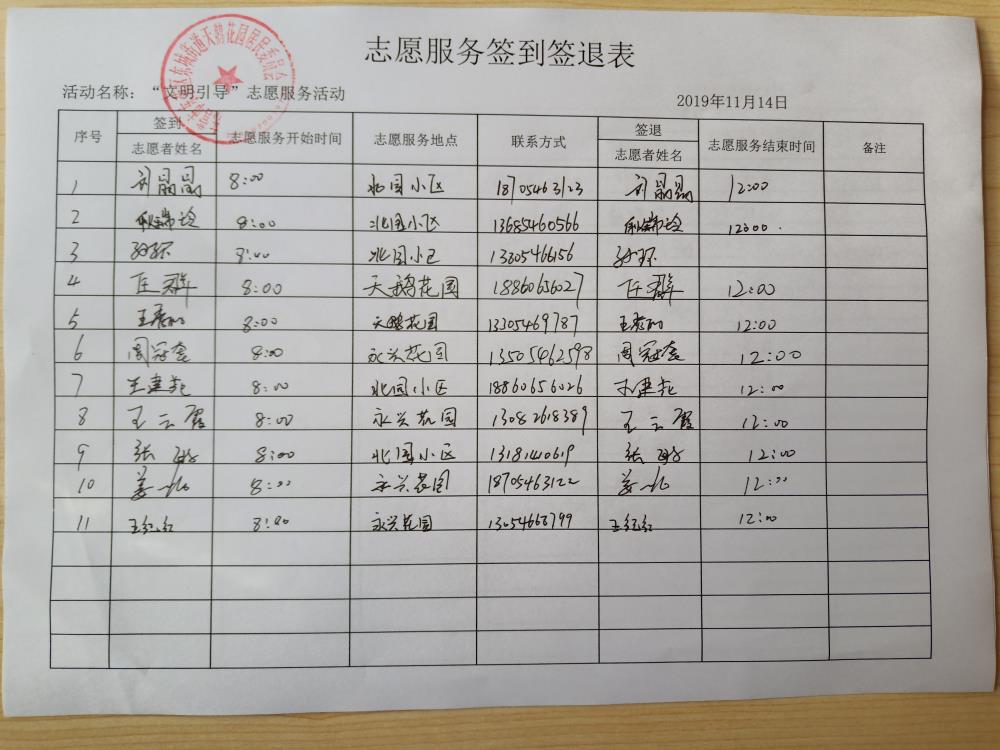 志愿服务签到签退表
活动名称：“文明引导”志愿服务活动
2019年11月14日
序号 签到 志愿者姓名 志愿服务开始时间 志愿服务地点 联系方式 签退 志愿者姓名 志愿服务结束时间 备注
1 刘晶晶 8:00 北园小区 18705463123 刘晶晶 12:00
2 8:00 北园小区 13685460566 12:00
3 孙环 8:00 北园小区 13305466156 孙环
4 任群 8:00 天鹅花园 18860656027 任群 12:00
5 8:00 天鹅花园 13305469787 12:00
6 周冠 8:00 永兴花园 13505462598 周冠 12:00
7 王建 8:00 北园小区 18860656026 王建 12:00
8 王云霞 8:00 永兴花园 13082618389 王云霞 12:00
9 张 8:00 北园小区 13181440619 张 12:00
10 姜 8:00 永兴花园 18705463122 姜 12:00
11 王红红 8:00 永兴花园 13054668799 王红红 12:00